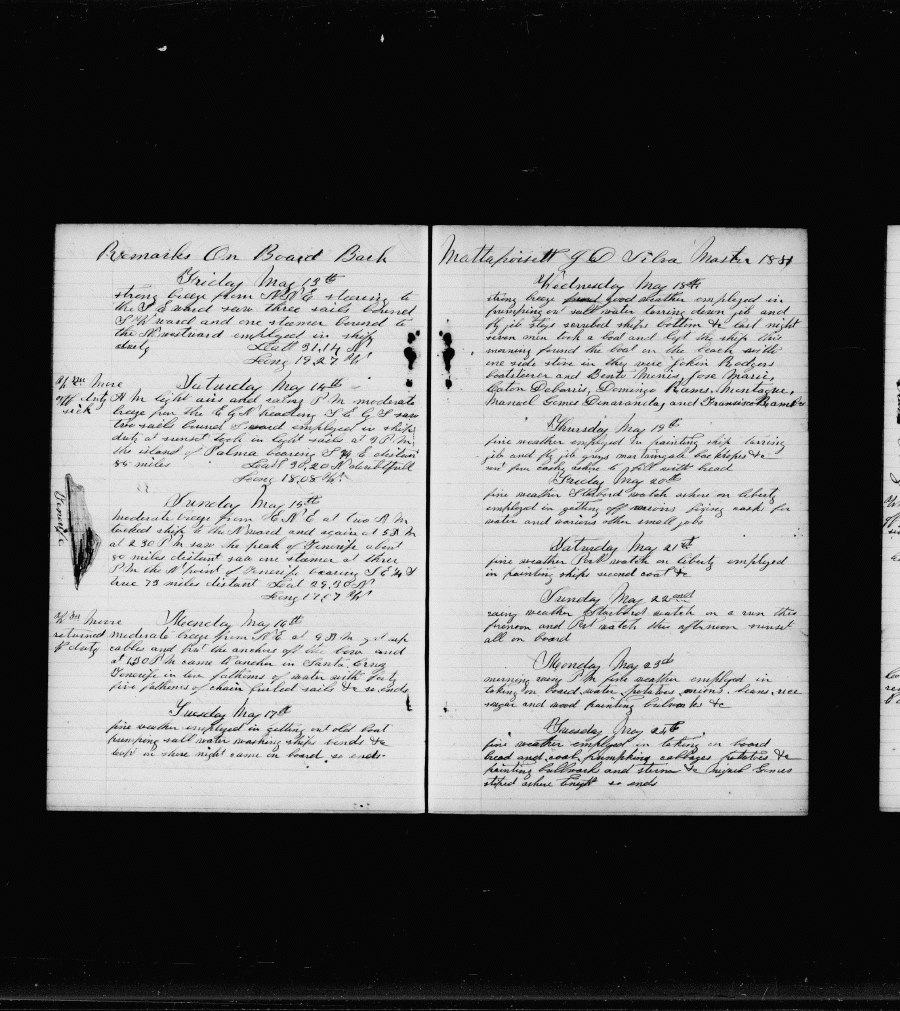 Remarks On Board Bark
Friday May 13th
strong breeze from N.N.E steering to
the S E ward saw three sails bound
S W ward and one steamer bound to
the N westward employed in ship
duty Latt 31,14 N
Long 19,27 W
Saturday May 14th
A M light airs and calms P M moderate
breeze from the E S N heading S E saw
two sails bound S ward employed in ships
duty at sunset took in light sails at 9 P M
the island of Palma bearing S E distant
85 miles Latt 30,20 N doubtfull
Long 18,08 W
off duty
sick
Sunday May 15th
moderate breeze from E N E at two A M
tacked ship to the N ward and again at 5 A M
at 2 30 P M saw the peak of Teneriffe about
80 miles distant saw one steamer at three
P M the N point of Teneriffe bearing S E
true 73 miles distant Lat 29,30 N
Long 17,07 W
Teneriffe
Monday May 16th
moderate breeze from N E at 9 A M got up
cables and put the anchors off the bow and
at 1,30 P M came to anchor in Santa Cruz
Teneriffe in ten fathoms of water with forty
five fathoms of chain furled sails &c so ends
returned
to duty
Tuesday May 17th
fine weather employed in getting out old boat
pumping salt water washing ships bends &c
Capt on shore night came on board so ends
Mattapoisett J D Silva Master 1881
Wednesday May 18th
strong breeze good weather employed in
pumping out salt water tarring down jib and
fly jib stays scrubed ships bottom &c last night
seven men took a boat and left the ship this
morning found the boat on the beach with
one side stove in they were John Rodgers
boatsteerer and Bento Jose Maria,
Caton Debarris, Domingo Rams, Montague,
Manuel Gomes Denaranda, and Francisco Ramos
Thursday May 19th
fine weather employed in painting ship tarring
jib and fly jib guys martaingale backropes &c
sent five casks ashore to fill with bread
Friday May 20th
fine weather Starbord watch ashore on liberty
employed in getting off onions fixing casks for
water and various other small jobs
Saturday May 21st
fine weather Port watch on liberty employed
in painting ships second coat &c
Sunday May 22ond
rainy weather Starbord watch on a run this
forenoon and Port watch this afternoon sunset
all on board
Monday May 23rd
morning rainy P M fine weather employed in
taking on board water, potatoes onions, beans, rice
sugar and wood painting bulwarks &c
Tuesday May 24th
fine weather employed in taking on board
bread and coal, pumpking cabbages potatoes &c
painting bullwark and sterne &c Gomes
ashore so ends